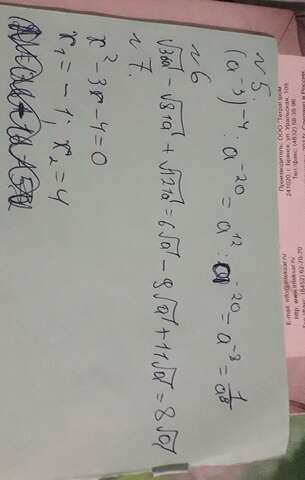 №5.
(a⁻³)⁻⁴ : a⁻²⁰ = a¹² : a⁻²⁰ = a⁻⁸ = 1/a⁸
№6
√36a − √81a + √121a = 6√a − 9√a + 11√a = 8√a
№7.
x² − 3x − 4 = 0
x₁ = −1; x₂ = 4
Производитель: ООО "Петрал Бром
241020, г. Брянск, ул. Уральская, 109
Тел./факс: (4832) 58-38-96
E-mail: info@
http: www.